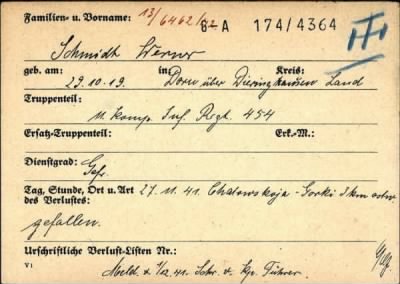 Familien- u. Vorname: 13/6462/ 6-A 174/4364
Schmidt Werner
geb. am: in: Kreis:
29.10.19. Dorn über Dieringhausen Land
Truppenteil:
11. Komp. Inf. Regt. 454
Ersatz-Truppenteil: Erk.-M.:
Dienstgrad:
Gefr.
Tag, Stunde, Ort u. Art 27.11.41. Gorki 3 km ostw.
des Verlustes:
gefallen.
Urschriftliche Verlust-Listen Nr.:
V 1 Meld. v. 41. Schr. v. Kp. Führer